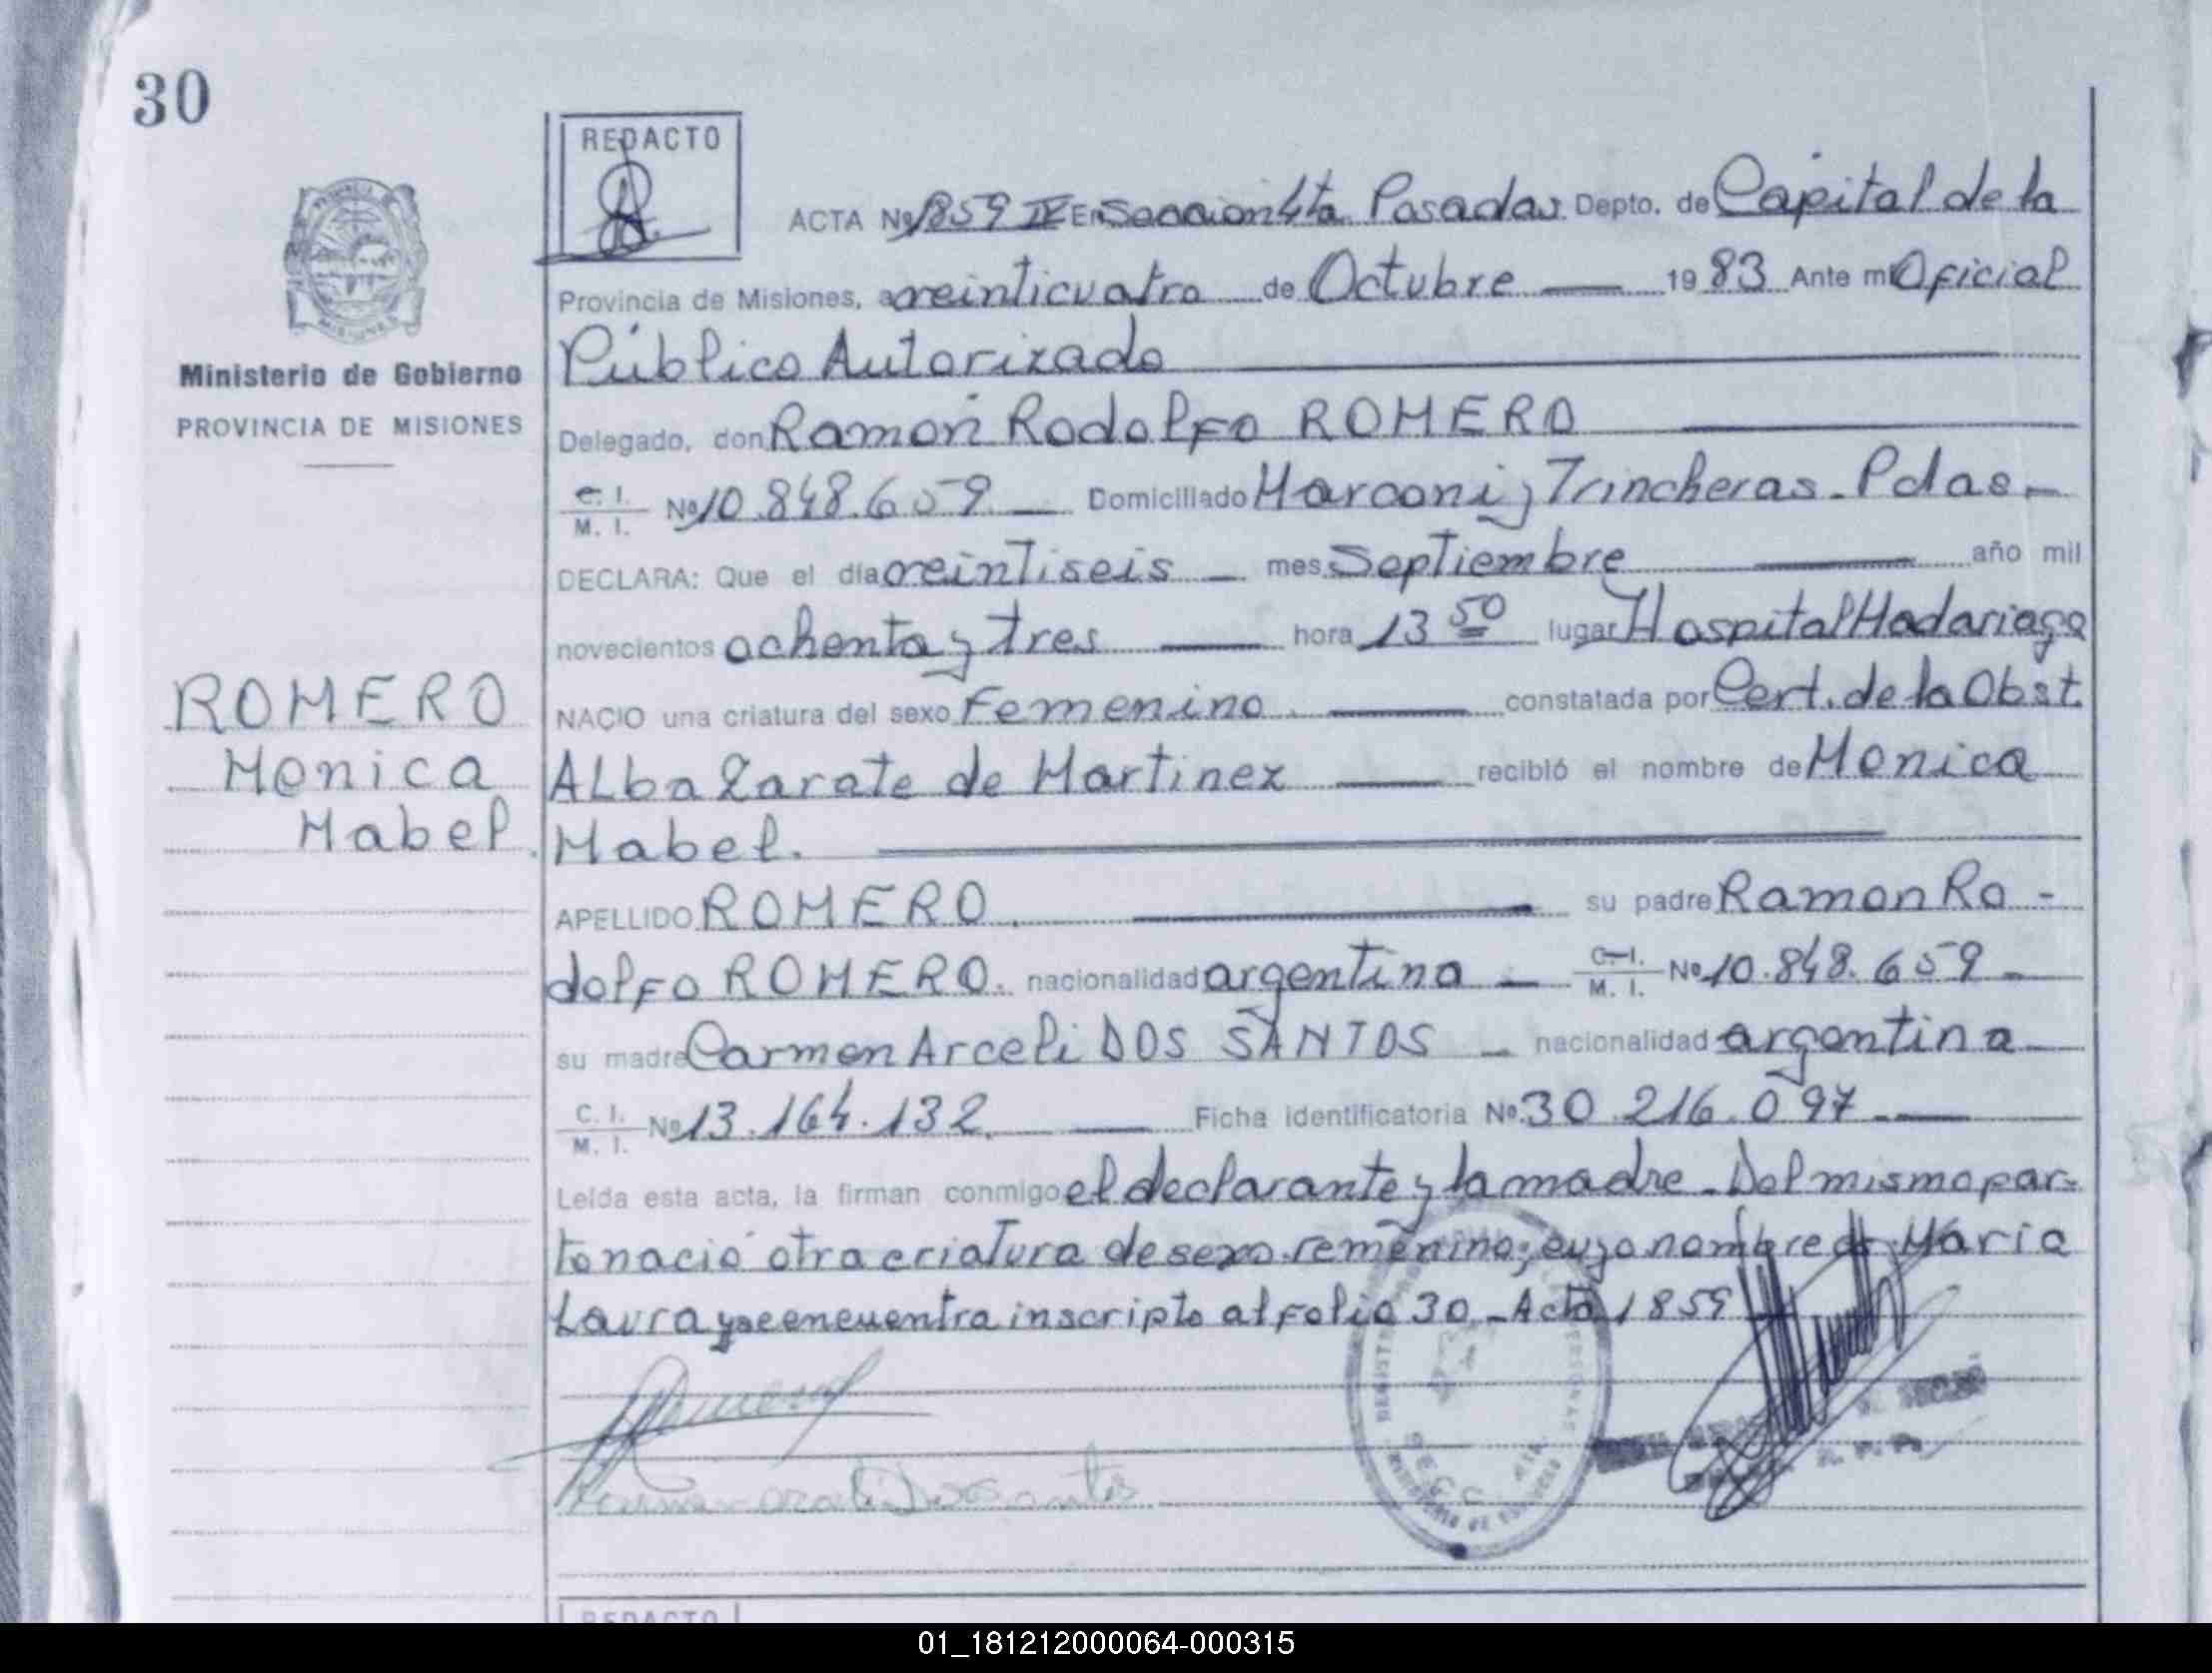 30
REDACTO
ACTA Nº 1859 IV En Sección 4ta. Posadas Depto. de Capital de la
Provincia de Misiones, a veinticuatro de Octubre 1983 Ante mi Oficial
Ministerio de Gobierno
PROVINCIA DE MISIONES
Público Autorizado
Delegado, don Ramón Rodolfo ROMERO
C. I. / M. I. Nº 10.848.659 Domiciliado Marconi y Trincheras - Pdas -
DECLARA: Que el día veintiseis - mes Septiembre año mil
novecientos ochenta y tres hora 13 50 lugar Hospital Madariaga
NACIO una criatura del sexo Femenino. constatada por Cert. de la Obst.
Alba Zarate de Martinez recibió el nombre de Monica
Mabel.
ROMERO
Monica
Mabel.
APELLIDO ROMERO. su padre Ramon Ro-
dolfo ROMERO. nacionalidad argentina - C. I. / M. I. Nº 10.848.659 -
su madre Carmen Arceli DOS SANTOS - nacionalidad argentina -
C. I. / M. I. Nº 13.164.132. Ficha identificatoria Nº 30.216.097 -
Leída esta acta, la firman conmigo el declarante y la madre - Del mismo par-
to nació otra criatura de sexo femenino, cuyo nombre es Maria
Laura y se encuentra inscripto al Folio 30 - Acta 1859
Carmen Araceli Dos Santos
REDACTO
01_181212000064-000315